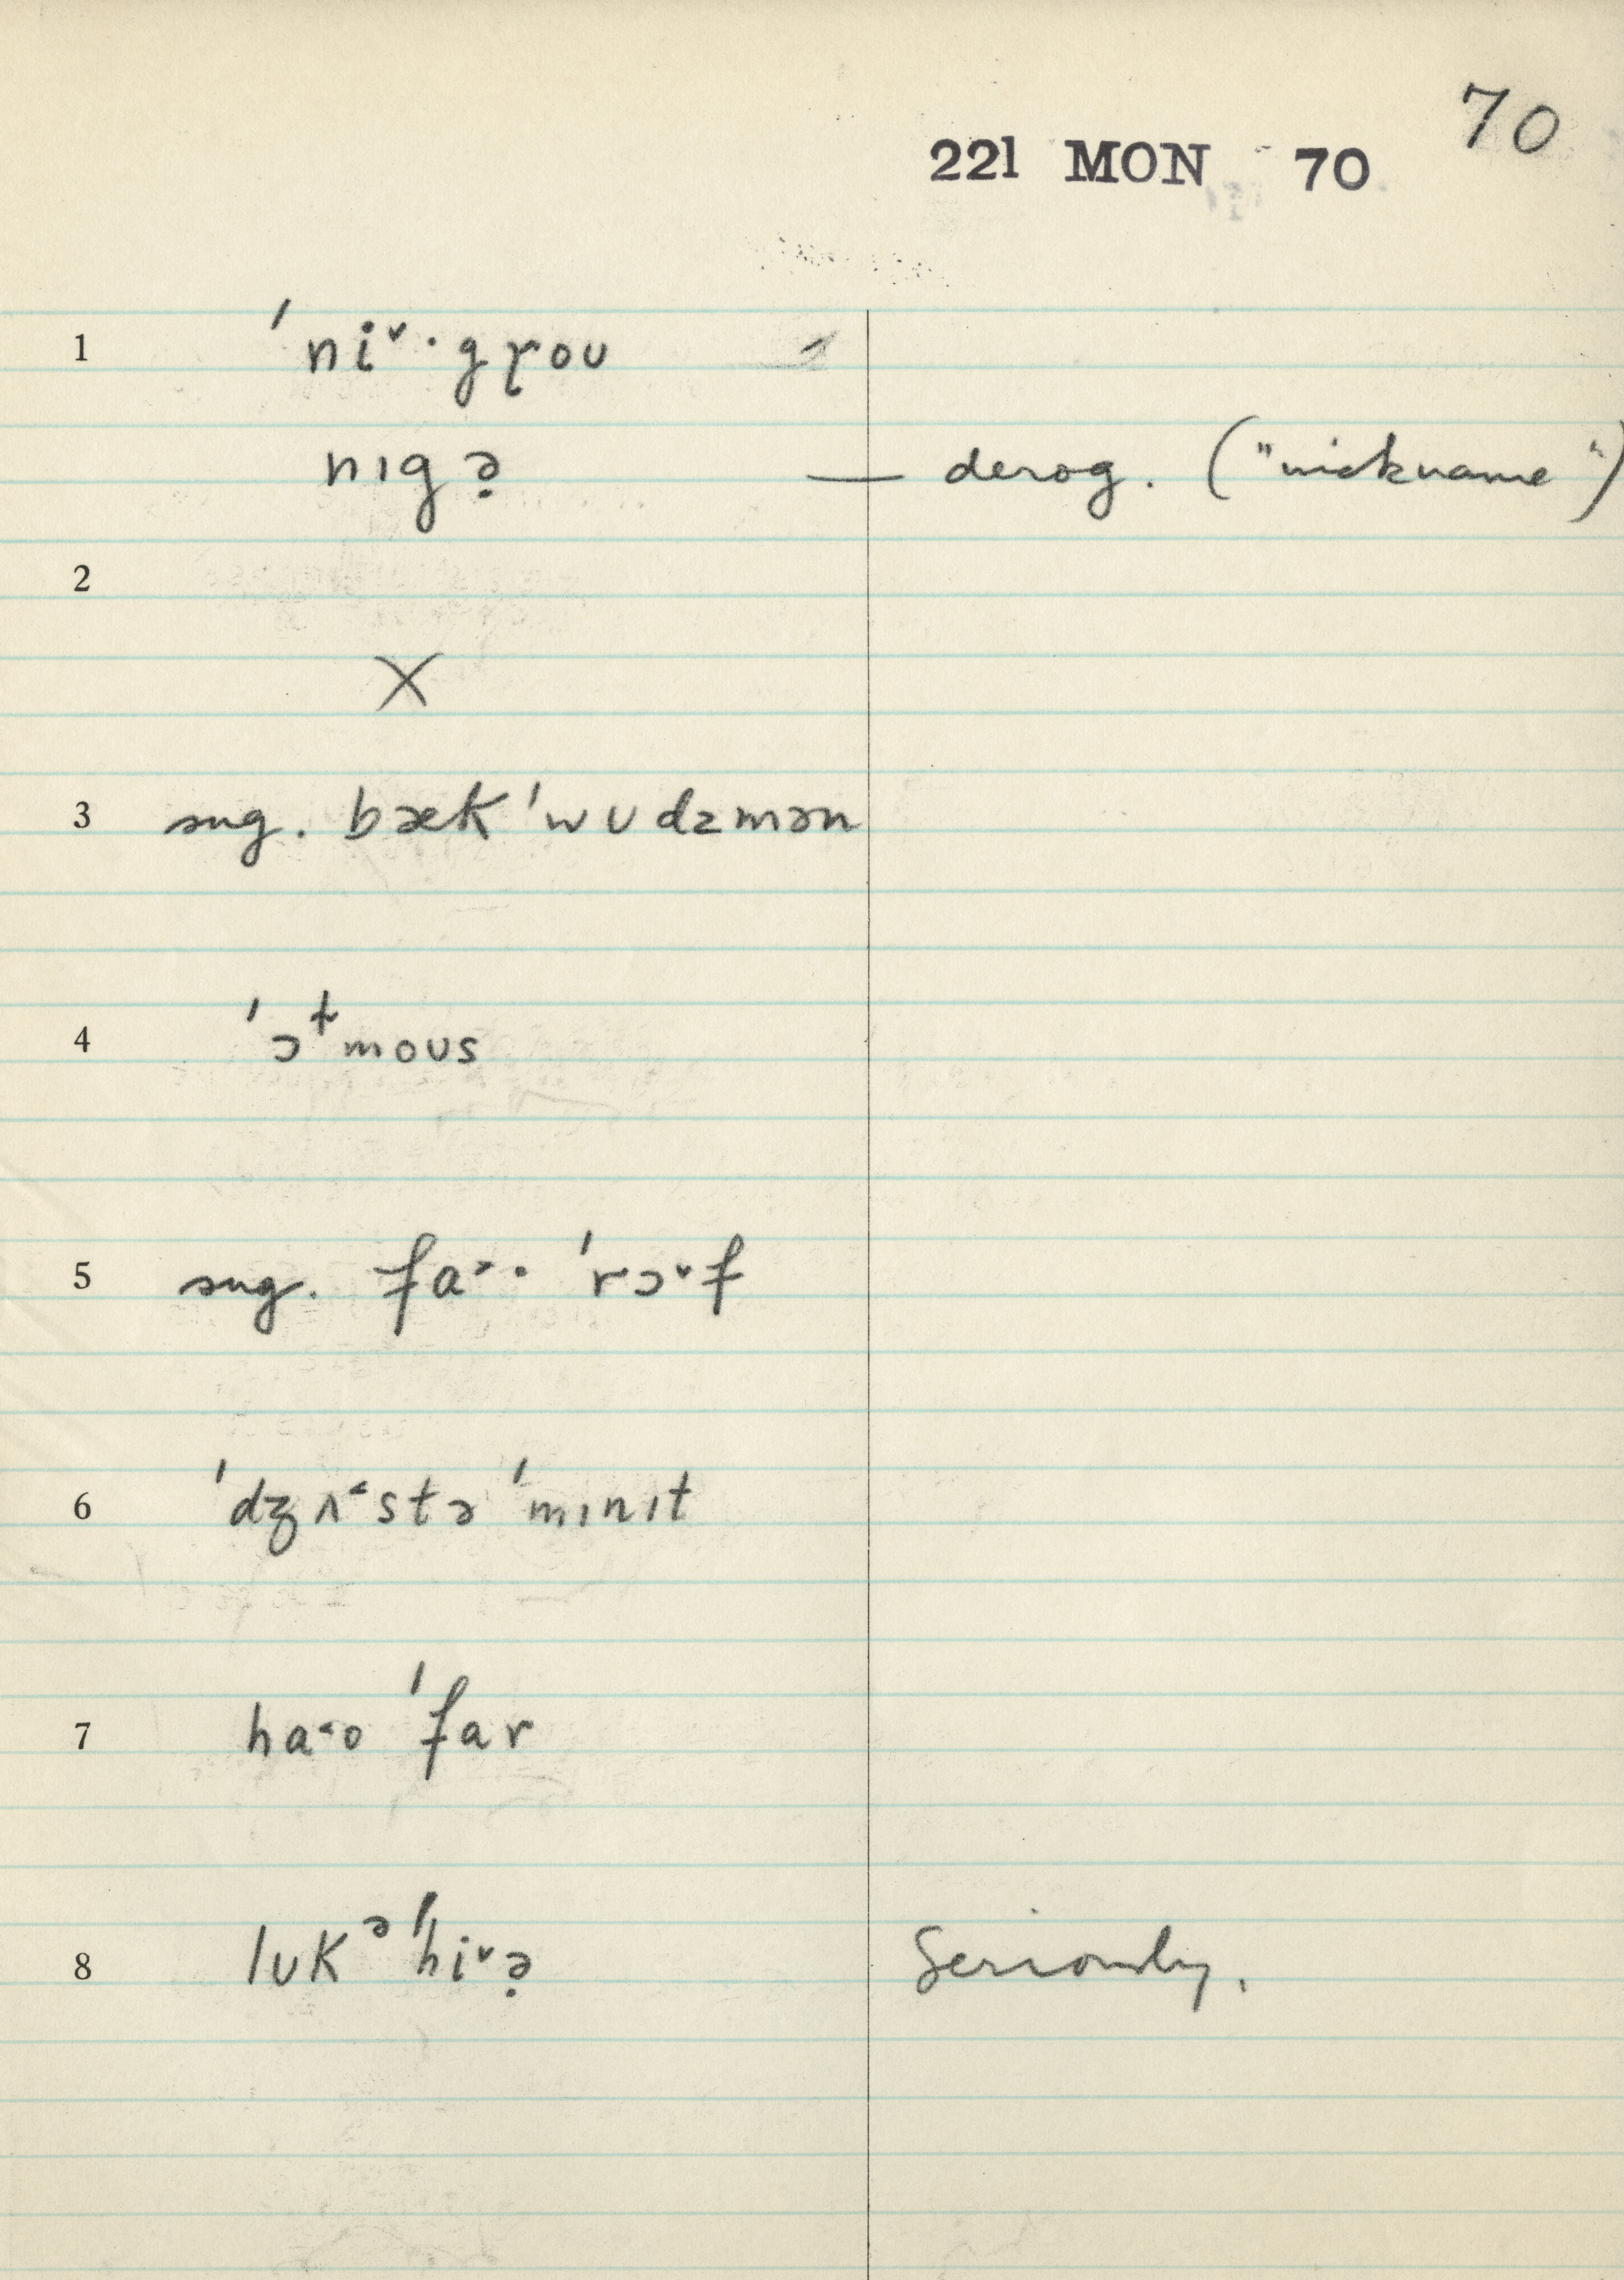 70
221 MON 70
1 ˈni˅·gɼou
nɪgə̣ — derog. ("nickname")
2
X
3 sug. bækˈwʊdzmən
4 ˈɔᵗmoʊs
5 sug. fa˃· ˈrɔ˅f
6 ˈdʒʌ˂stə ˈmɪnɪt
7 ha˂o ˈfar
8 lʊkᵊ ˈhi˅ə̣ Seriously.